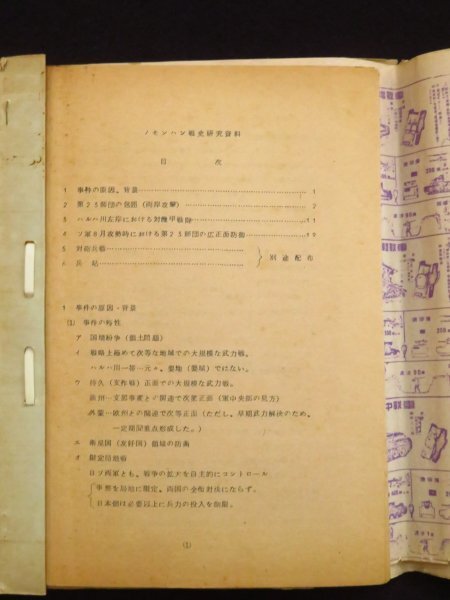 ノモンハン戦史研究資料
目 次
1 事件の原因、背景……………………………………1
2 第23師団の包囲(両岸攻撃)……………………2
3 ハルハ川左岸における対機甲戦闘…………………11
4 ソ軍8月攻勢時における第23師団の広正面防禦…12
5 対砲兵戦………………
6 兵 站………………
別途配布
1 事件の原因・背景
(1) 事件の特性
ア 国境紛争(領土問題)
イ 戦略上極めて次等な地域での大規模な武力戦。
ハルハ川一帯…元々、要地(要域)ではない。
ウ 持久(支作戦)正面での大規模な武力戦。
欧州…支那事変との関連で次等正面(軍中央部の見方)
外蒙…欧州との関連で次等正面(ただし、早期武力解決のため、
一定期間重点形成した。)
エ 衛星国(友好国)領域の防衛
オ 限定局地戦
日ソ両軍とも、戦争の拡大を自主的にコントロール
事態を局地に限定、両国の全面対決にならず。
日本側は必要以上に兵力の投入を制限。
(1)